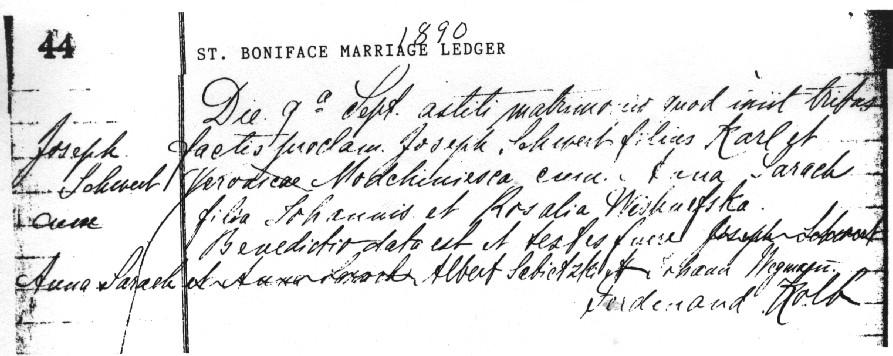 1890
44 ST. BONIFACE MARRIAGE LEDGER
Die 9ª Sept. astiti matrimonio quod iniit tribus
Joseph factis proclam. Joseph Schwert filius Karl et
Schwert Veronicae Modchiniesca cum Anna Sarach
cum filia Johannis et Rosalia
Benedictio data est et testes fuere Joseph Schwert
Anna Sarach et Anna Sarach Albert Sabietzki et Johann Wegmann.
Ferdinand Kolb